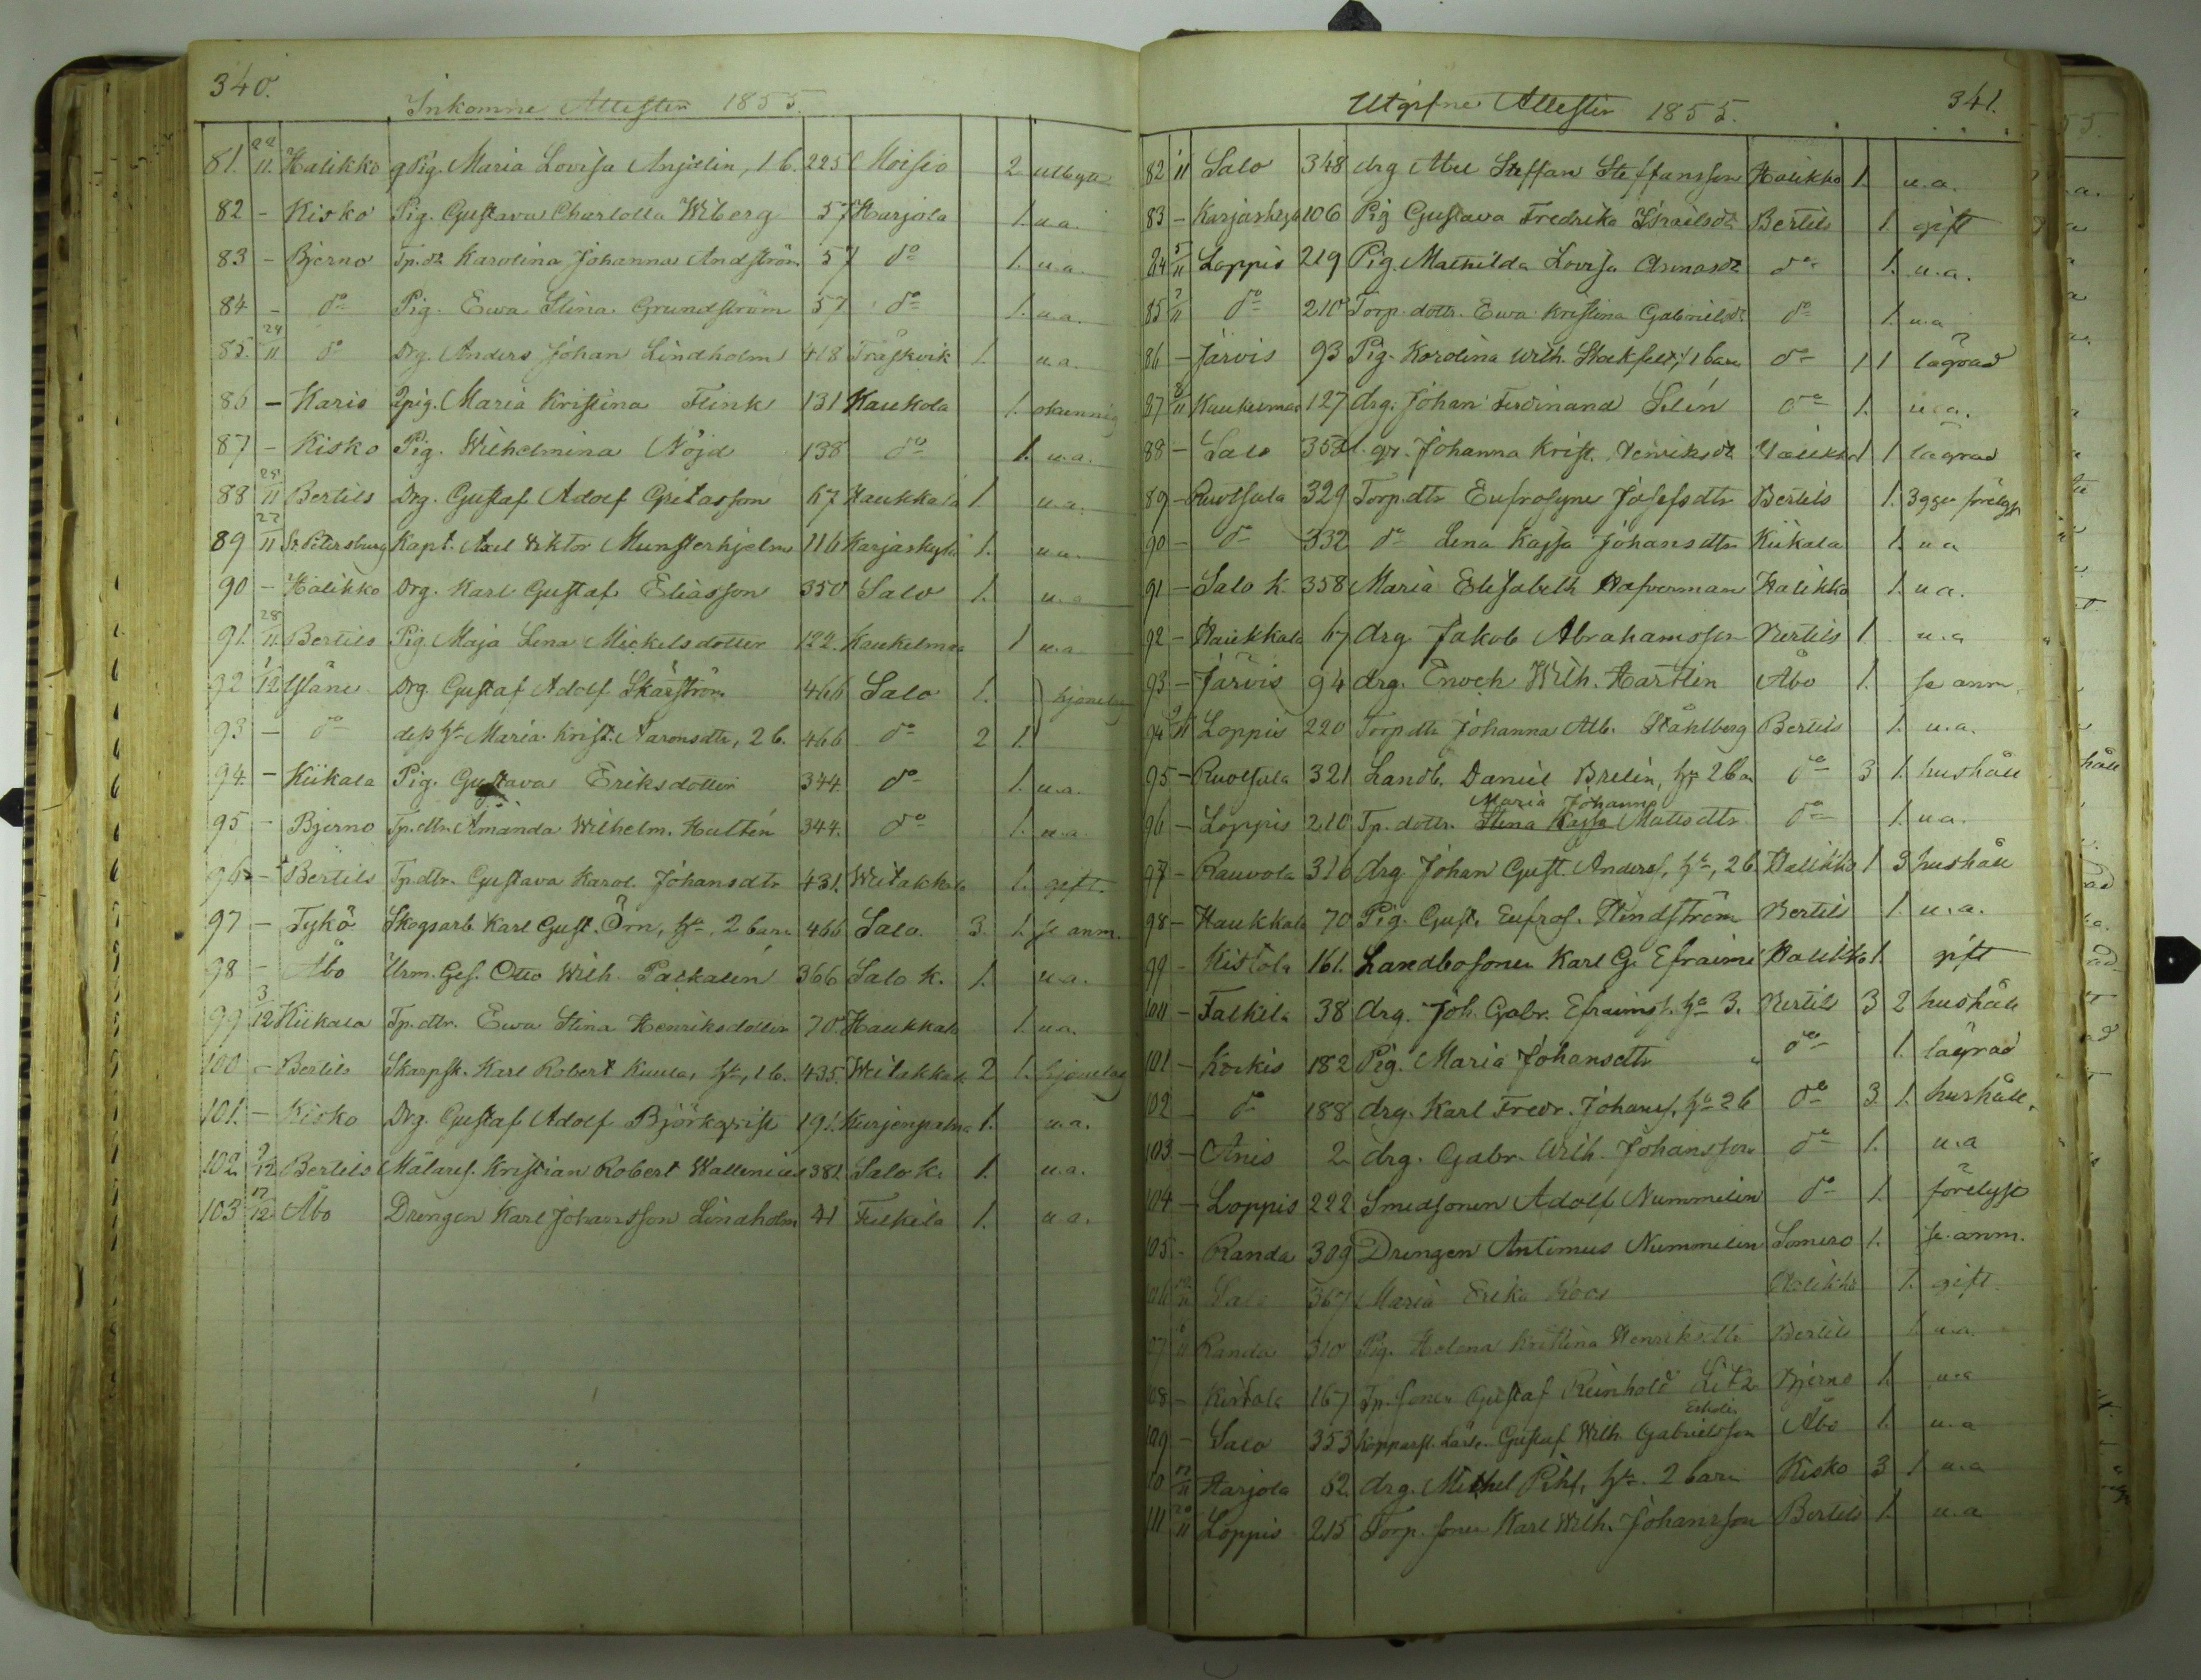 340.
Inkomne Attester 1855.
81. 22/11. Halikko Pig. Maria Lovisa 1 b. 225 Moisio 2
82 - Kisko Pig. Gustava Charlotta Wiberg 57 Harjola 1. u.a.
83 - Bjerno Tp. dr Karolina Johanna Andström 57 do 1. u.a.
84 - do Pig. Ewa Stina Grundström 57 do 1. u.a.
85. 24/11 do Drg. Anders Johan Lindholm 418 Träskvik 1. u.a.
86 - Karis Maria Kristina Flink 131 Kaukola 1.
87 - Kisko Pig. Wilhelmina Nöjd 138 do 1. u.a.
88 25/11 Bertils Drg. Gustaf Adolf Gretasson 67 Haukkala 1. u.a.
89 27/11 St. Petersburg Kapt. Axel Viktor Munsterhjelm 116 Karjaskylä 1. u.a.
90 - Halikko Drg. Karl Gustaf Eliasson 350 Salo 1. u.a
91. 28/11 Bertils Pig. Maja Lena Mickelsdotter 122. Kaukelmaa 1 u.a
92 1/12 Drg. Gustaf Adolf Skarström 466 Salo 1. hjonelag
93 - do dess hu Maria Krist. Aaronsdtr, 2 b. 466 do 2 1.
94. - Kiikala Pig. Gustava Eriksdotter 344. do 1. u.a.
95 - Bjerno Tp. dtr. Amanda Wilhelm. Hultén 344. do 1. u.a
96 - Bertils Tp. dtr. Gustava Karol. Johansdtr 431. Weitakkala 1. gift.
97 - Tykö Skogsarb. Karl Gust. Örn, hu, 2 barn 466 Salo. 3. 1. se anm.
98 - Åbo Urm. Ges. Otto Wilh. Packalén 366 Salo k. 1. u.a.
99 3/12 Kiikala Tp. dtr. Ewa Stina Henriksdotter 70 Haukkala 1. u.a.
100 - Bertils Skarpsk. Karl Robert Kuula, hu, 1 b. 435. Weitakkala 2 1. hjonelag
101. - Kisko Drg. Gustaf Adolf Björkqvist 191. Kurjenpahna 1. u.a.
102 9/12 Bertils Målares. Kristian Robert Wallenius 382 Salo k. 1. u.a.
103 17/12 Åbo Drengen Karl Johansson Lindholm 41 Falkila 1. u.a.
Utgifne Attester 1855.
341.
82 1/11 Salo 348 drg Abel Steffan Steffansson Halikko 1. u.a.
83 - Karjaskylä 106 Pig Gustava Fredrika Israilsdr Bertils 1. gift
84 5/11 Loppis 219 Pig. Mathilda Lovisa do 1. u.a.
85 7/11 do 210 Torp. dottr. Ewa Kristina Gabrielsdr do 1. u.a
86 - Järvis 93 Pig. Karolina Wilh. 1 barn do 1 1 lägrad
87 8/11 Kaukelmaa 127 drg. Johan Ferdinand Selin do 1. u.a.
88 - Salo 353 Johanna Krist. Henriksdr Halikko 1 1 lägrad
89 - Ruotsala 329 Torp. dtr Eufrosyne Josefsdtr Bertils 1. 3 ggr förelyst
90 - do 332 do Lena Kajsa Johansdtr Kiikala 1. u a
91 - Salo k. 358 Maria Elisabeth Hafverman Halikko 1. u a.
92 - Haukkala 67 drg. Jakob Abrahamsson Bertils 1. u.a
93 - Järvis 94 drg. Enoch Wilh. Hartlin Åbo 1. se anm.
94 9/11 Loppis 220 Torp. dtr Johanna Alb. Ståhlberg Bertils 1. u.a.
95 - Ruotsala 321 Landb. Daniel Brelin, hu 2 ba do 3 1. hushåll
Maria Johanna
96 - Loppis 210 Tp. dottr. Stina Kajsa Mattsdtr do 1. u.a.
97 - Rauvola 316 drg Johan Gust. Anderss, hu, 2 b Halikko 1 3 hushåll
98 - Haukkala 70 Pig. Gust. Eufros. Flindström Bertils 1. u.a.
99 - Kistola 161. Landbosonen Karl G. Efraims Halikko 1. gift
100 - Falkila 38 drg. Joh. Gabr. Efraimss. hu 3. Bertils 3 2 hushåll
101 - Kockis 182 Pig. Maria Johansdtr do 1. lägrad
102 do 188 drg. Karl Fredr. Johanss, hu 2 b do 3 1. hushåll.
103 - Anis 2 drg. Gabr. Wilh. Johansson do 1. u.a
104 - Loppis 222 Smedsonen Adolf Nummelin do 1. förelyst
105 - Randa 309 Drengen Antimus Nummelin Somero 1. se anm.
106 Salo 367 Maria Erika Roos Halikko 1. gift
107 Randa 310 Pig. Helena Kristina Henriksdtr Bertils 1. u.a.
108 - Kistola 167 Tp. sonen Gustaf Reinhold Litz Bjerno 1. u.a
109 - Salo 353 Kopparsl. Lärl. Gustaf Wilh. Gabrielsson Åbo 1. u.a
110 17/11 Harjola 62 drg. Michel Pihl, hu. 2 barn Kisko 3 1 u.a
111 20/11 Loppis 215 Torp. sonen Karl Wilh. Johansson Bertils 1. u.a